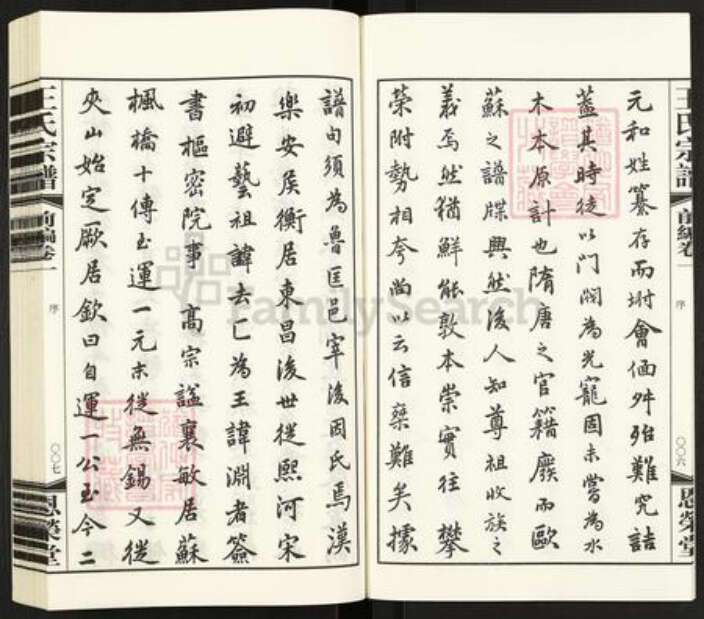 元和姓纂存而坿會偭舛殆難究詰
蓋其時徒以門閥為光寵固未嘗為水
木本原計也隋唐之官籍廢而歐
蘇之譜牒興然後人知尊祖收族之
義焉然猶鮮能敦本崇實往攀
榮附勢相夸尚以云信乘難矣據
譜句須為魯匡邑宰後因氏焉漢
樂安侯衡居東昌後世從熙河宋
初避藝祖諱去匚為王諱淵者簽
書樞密院事 高宗諡襄敏居蘇
楓橋十傳至運一元末從無錫又從
夾山始定厥居欽曰自運一公至今二
王氏宗譜
前編卷一
序
〇〇六
恩榮堂
王氏宗譜
前編卷一
序
〇〇七
恩榮堂
FamilySearch